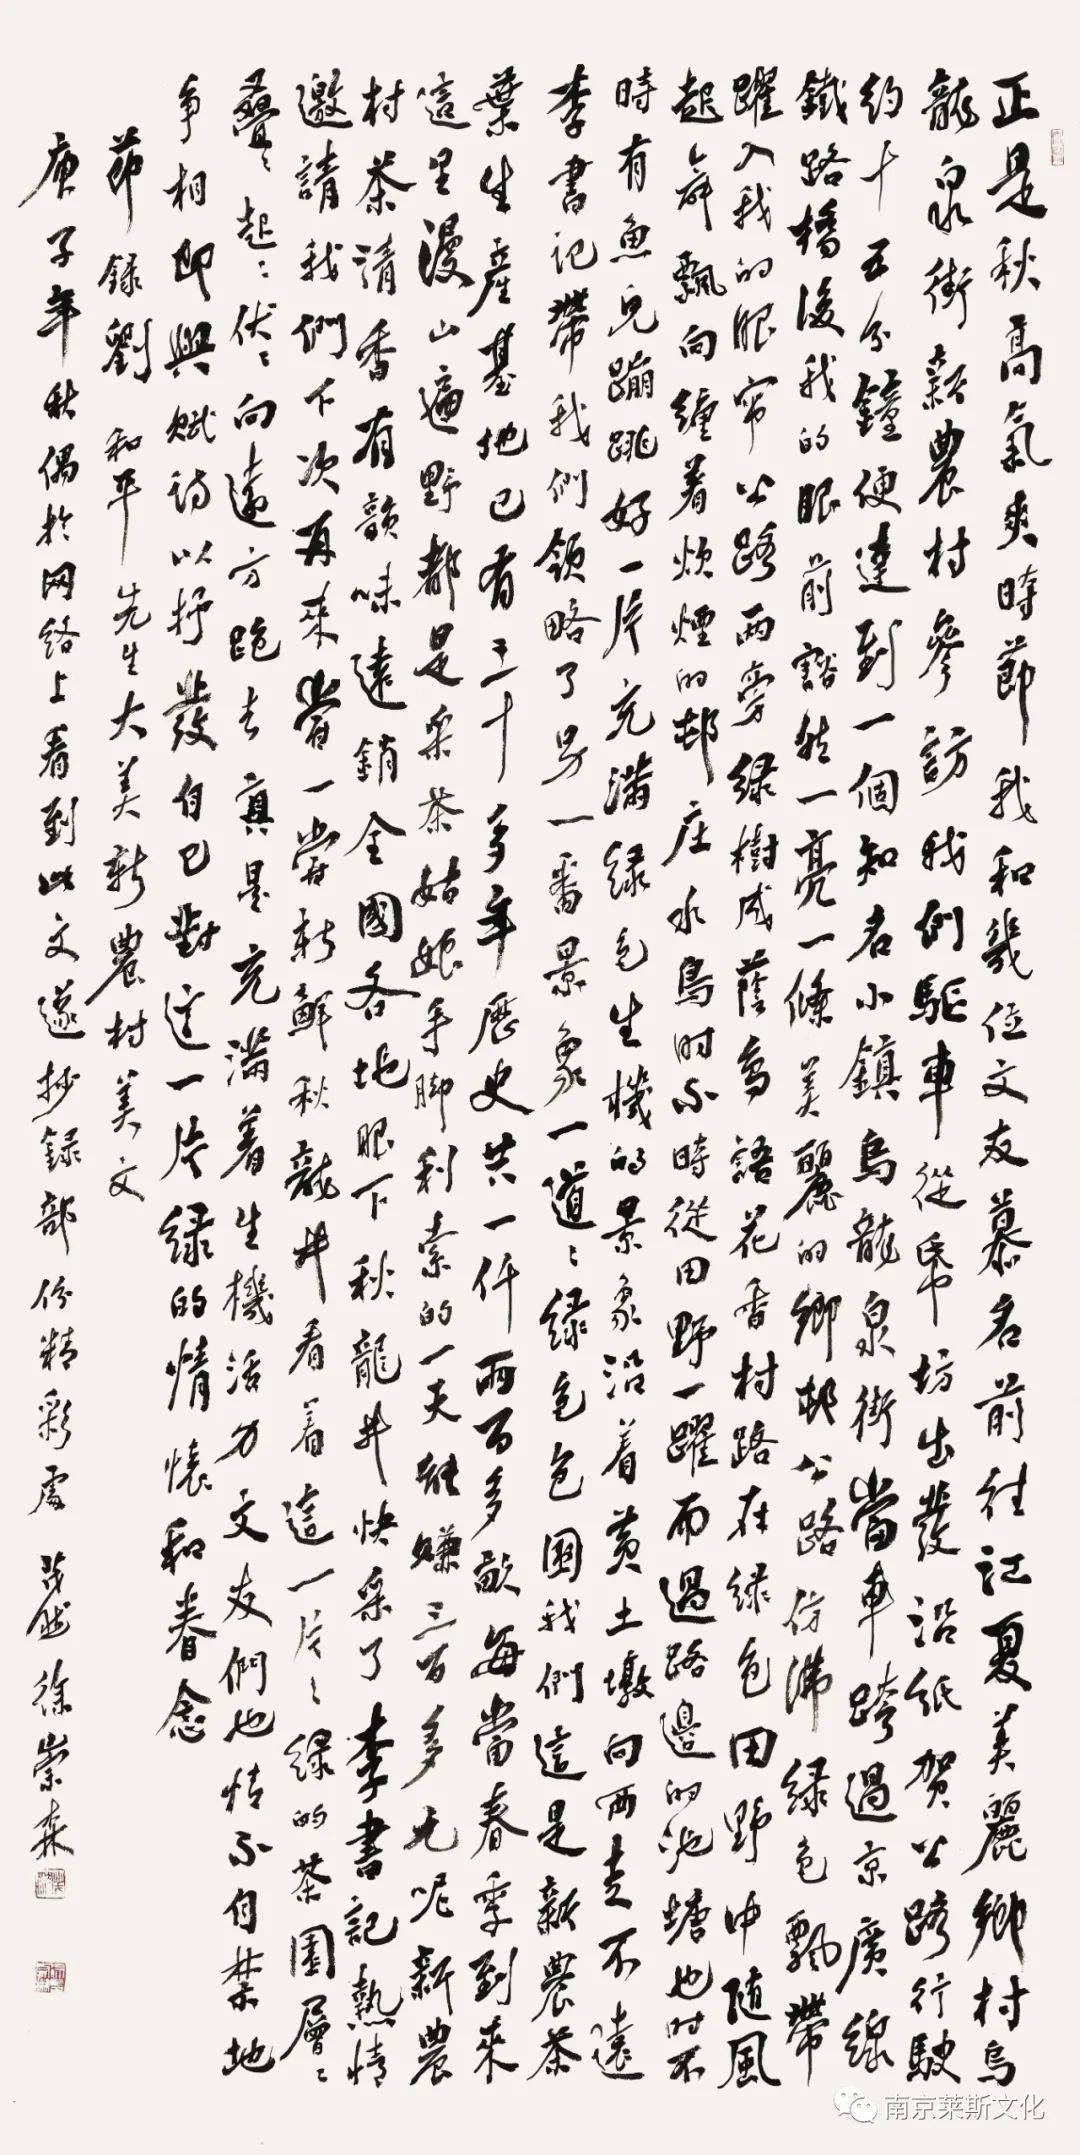 正是秋高氣爽時節我和幾位文友慕名前往江夏美麗鄉村烏
龍泉街新農村參訪我們駈車從紙坊出發沿紙賀公路行駛
約十五分鐘便達到一個知名小鎮烏龍泉街當車跨過京廣線
鐵路橋後我的眼前豁然一亮一條美麗的鄉邨公路仿彿綠色飄帶
躍入我的眼帘公路兩旁綠樹成蔭鳥語花香村路在綠色田野中随風
起舞飄向纏着炊煙的邨庄水鳥时不時從田野一躍而過路邊的池塘也时不
時有魚兒蹦跳好一片充滿綠色生機的景象沿着黄土墩向西走不遠
李書記帶我們領略了另一番景象一道道綠色包圍我們這是新農茶
葉生產基地已有三十多年歷史共一仟兩百多畝每當春季到來
這里漫山遍野都是采茶姑娘手脚利索的一天能赚三百多元呢新農
村茶清香有韻味遠銷全國各地眼下秋龍井快采了李書記熱情
邀請我們下次再来嘗一嘗新鮮秋龍井看着這一片片綠的茶園層層
疊疊起起伏伏向遠方跑去真是充滿着生機活力文友們也情不自禁地
争相即興赋詩以抒發自已對這一片綠的情懷和眷念
節録劉和平先生大美新農村美文
庚子年秋偶於网络上看到此文遂抄録部份精彩處 徐崇森
南京莱斯文化